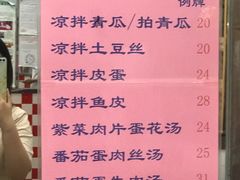 例牌
凉拌青瓜/拍青瓜 20
凉拌土豆丝 20
凉拌皮蛋 24
凉拌鱼皮 28
紫菜肉片蛋花汤 24
番茄蛋肉丝汤 25
番茄蛋牛肉汤 31